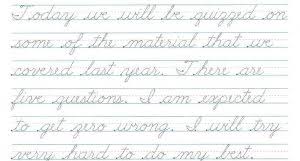 Today we will be quizzed on
some of the material that we
covered last year. There are
five questions. I am expected
to get zero wrong. I will try
very hard to do my best.